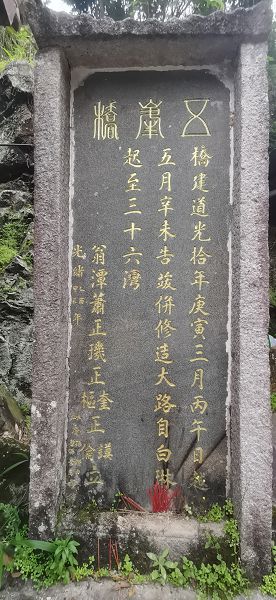 五峯橋
橋建道光拾年庚寅三月丙午日起
五月辛未告竣併修造大路自白
起至三十六灣
翁潭蕭正璣正奎謨
正樞正倫立
光緒年